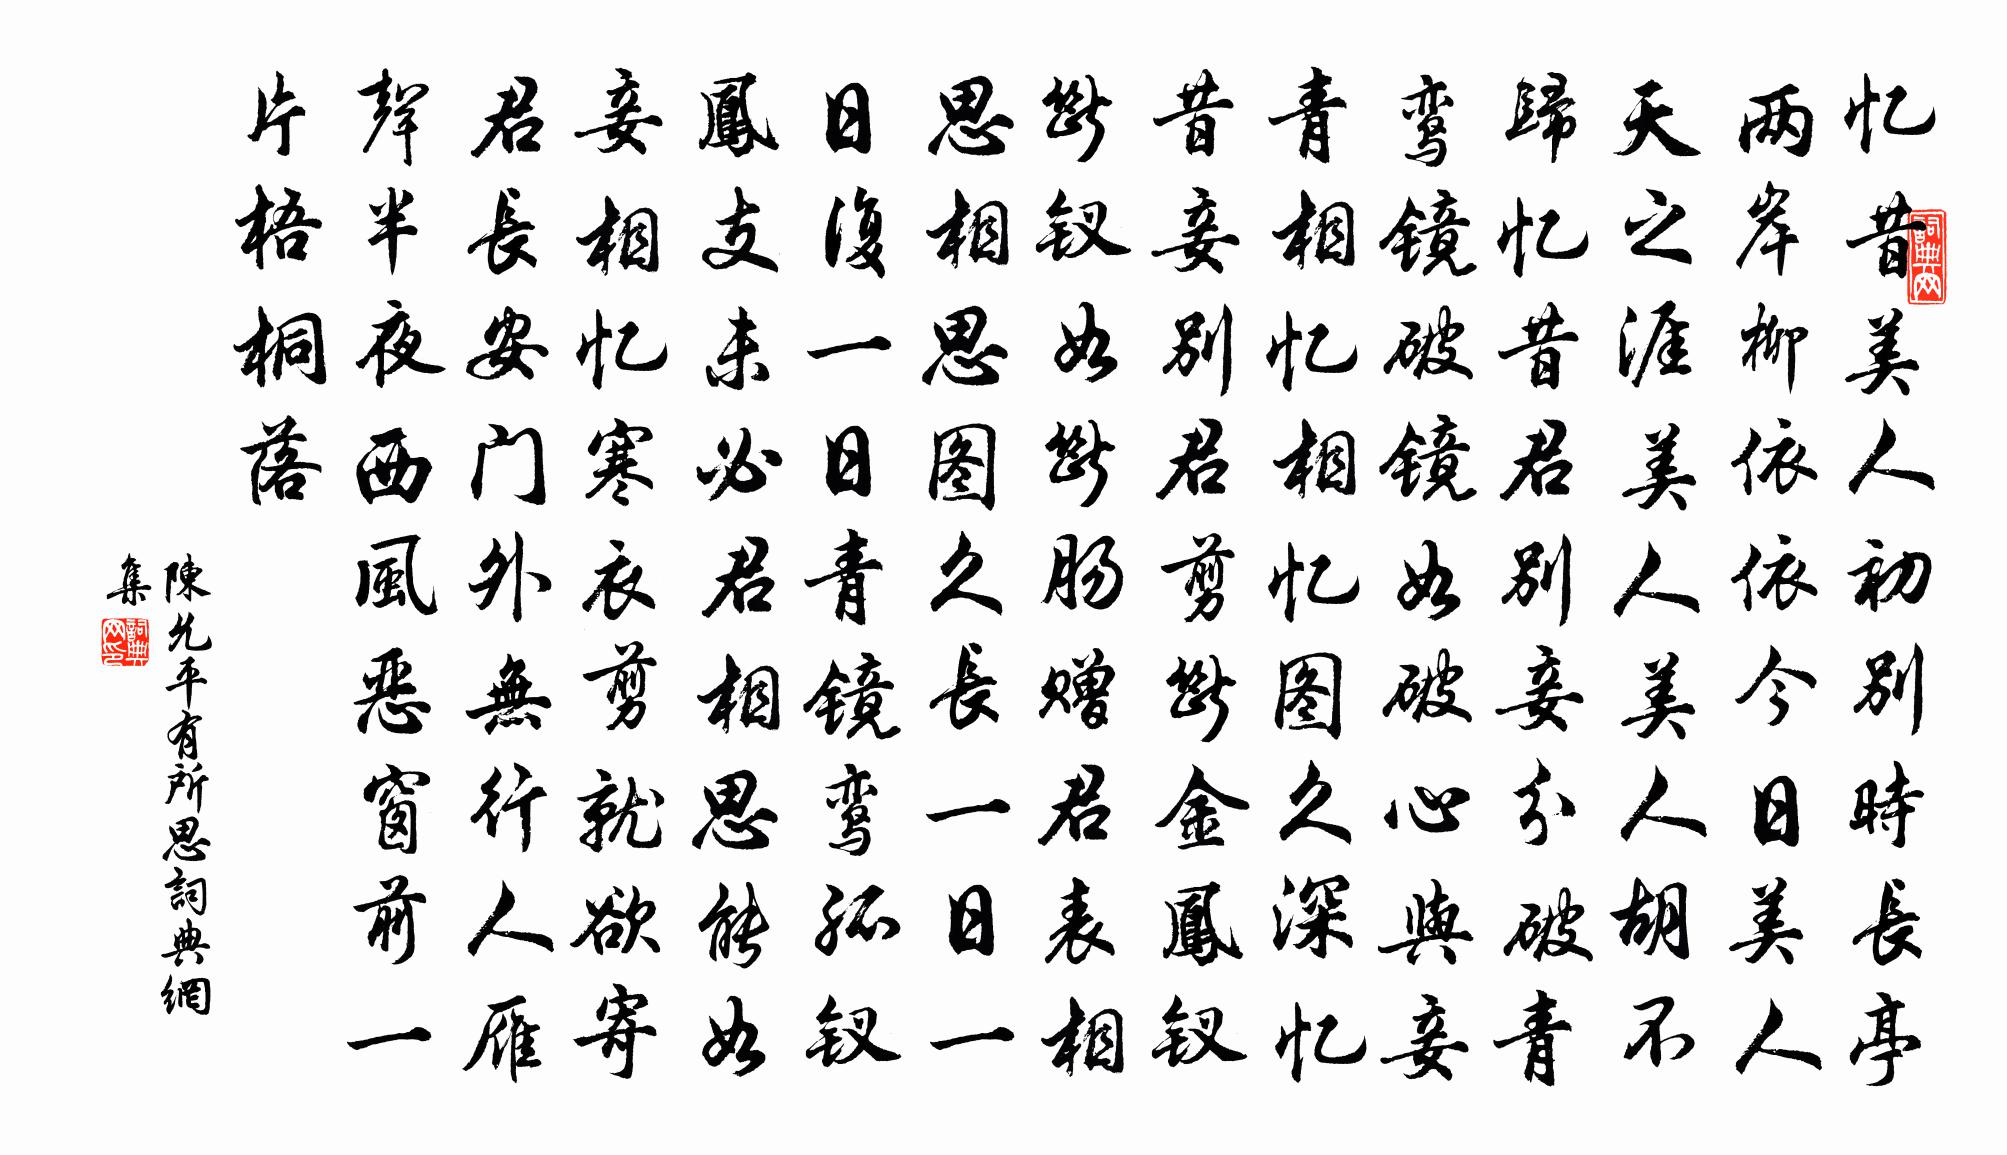 忆昔美人初别時長亭
两岸柳依依今日美人
天之涯美人美人胡不
歸忆昔君别妾分破青
鸾镜破镜如破心與妾
青相忆相忆图久深忆
昔妾别君剪断金鳳钗
断钗如断肠赠君表相
思相思图久長一日一
日復一日青镜鸾孤钗
鳳支未必君相思能如
妾相忆寒衣剪就欲寄
君長安门外無行人雁
聲半夜西風恶窗前一
片梧桐落
陳允平有所思詞典網
集
詞典网
詞典网印